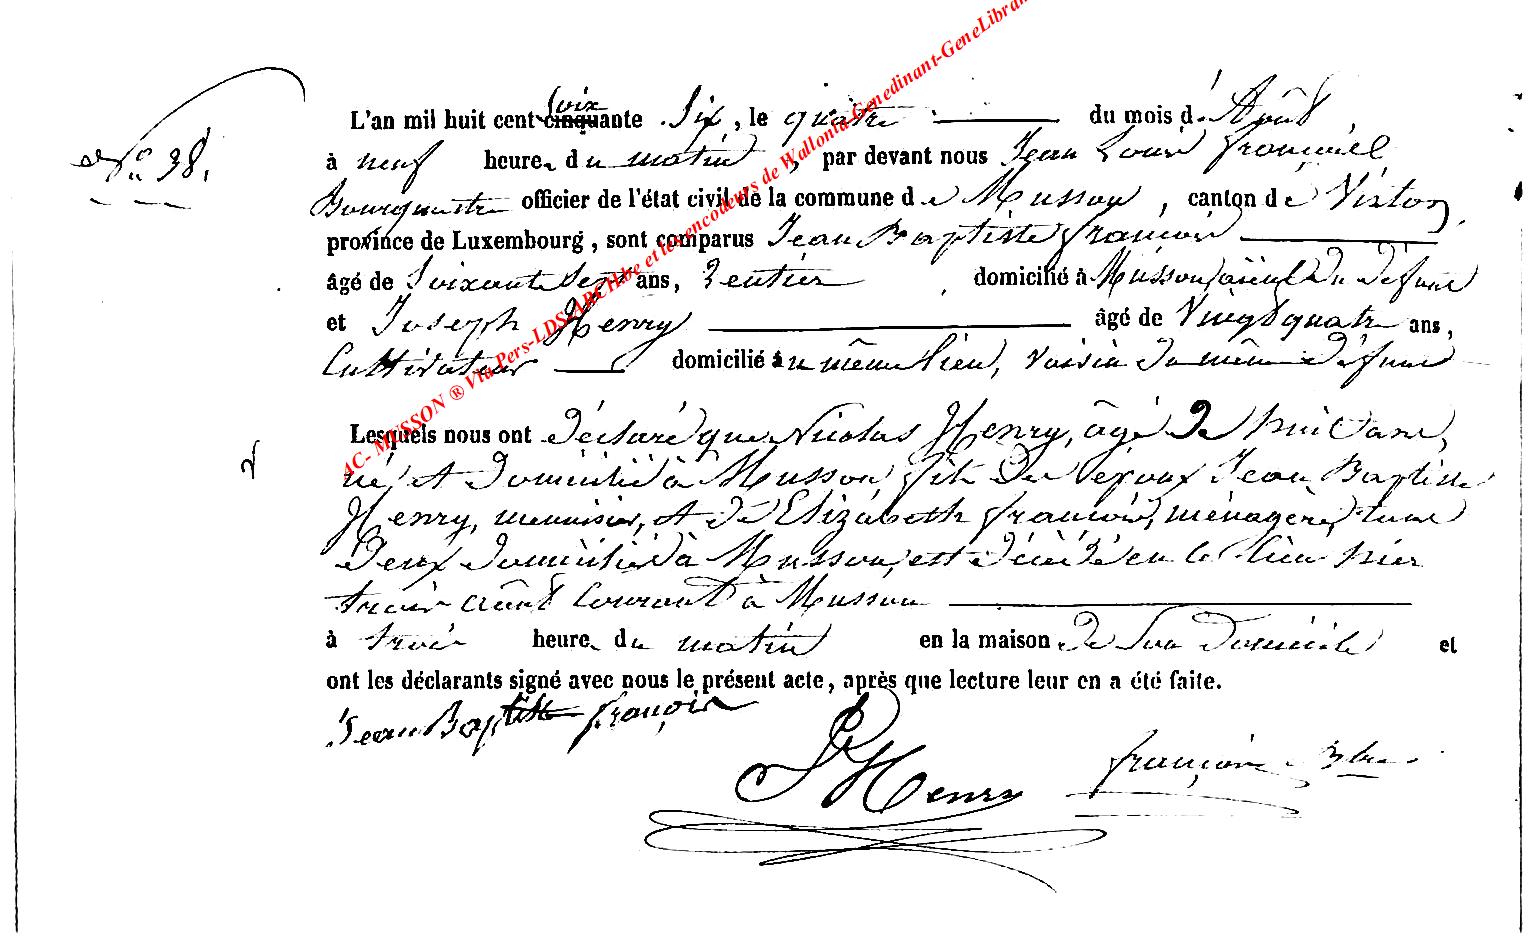 N.o 38.
L'an mil huit cent soixante six, le quatre du mois d'Août
à neuf heures du matin, par devant nous Jean Louis François
Bourgmestre officier de l'état civil de la commune de Musson, canton de Virton,
province de Luxembourg, sont comparus Jean Baptiste François
âgé de soixante sept ans, rentier domicilié à Musson, aïeul du défunt
et Joseph Henry âgé de vingt quatre ans,
Cultivateur domicilié au même lieu, voisin du même défunt
Lesquels nous ont déclaré que Nicolas Henry, âgé de huit ans,
né et domicilié à Musson, fils des époux Jean Baptiste
Henry, menuisier, et de Elizabeth François, ménagère, tous
deux domiciliés à Musson, est décédé en ce lieu hier
trois août courant à Musson
à trois heures du matin en la maison de son domicile et
ont les déclarants signé avec nous le présent acte, après que lecture leur en a été faite.
Jean Baptiste françois
J Henry
françois Bre
AC- MUSSON ® Via Pers-LDS-ARCH.be et les encodeurs de Wallonia-Genedinant-GeneLibran